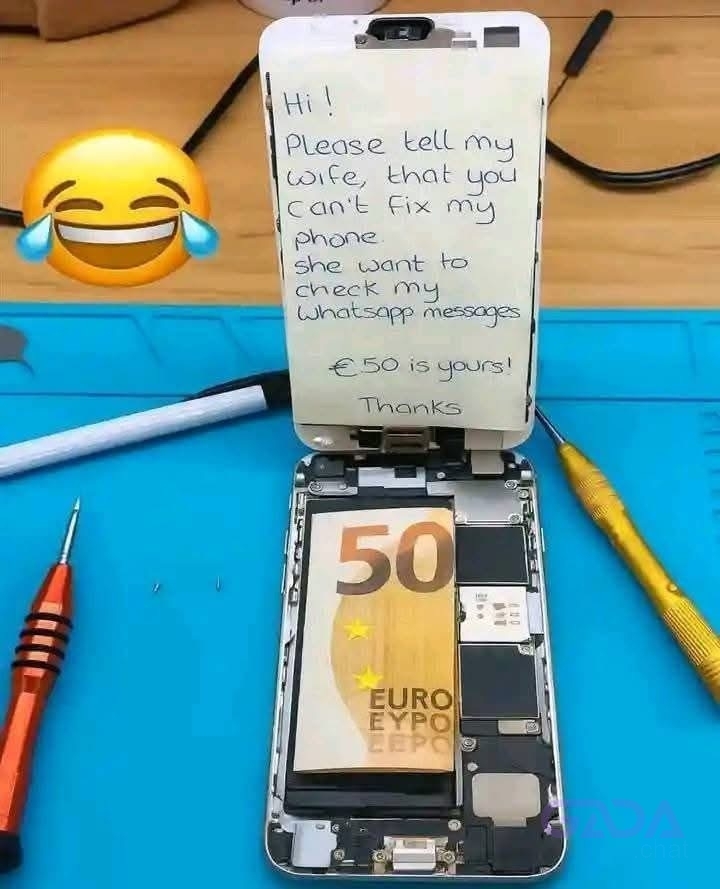 Hi!
Please tell my
wife, that you
can't fix my
phone.
she want to
check my
Whatsapp messages
€50 is yours!
Thanks
50
EURO
EYPO
EEPO